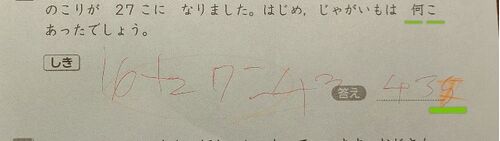 のこりが 27こに なりました。はじめ,じゃがいもは 何こ
あったでしょう。
しき 16+27=43 答え 43